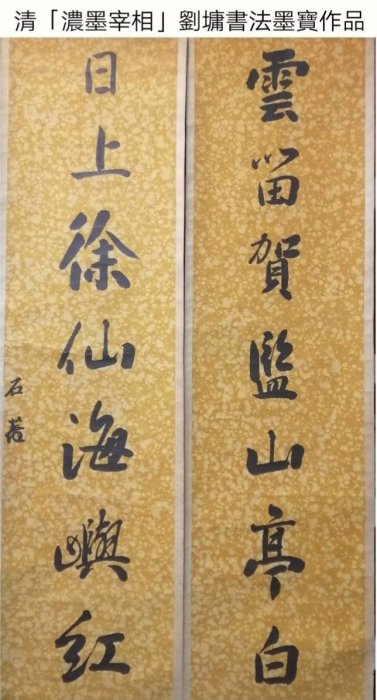 清「濃墨宰相」劉墉書法墨寶作品
雲留賀監山亭白
日上徐仙海嶼紅
石菴